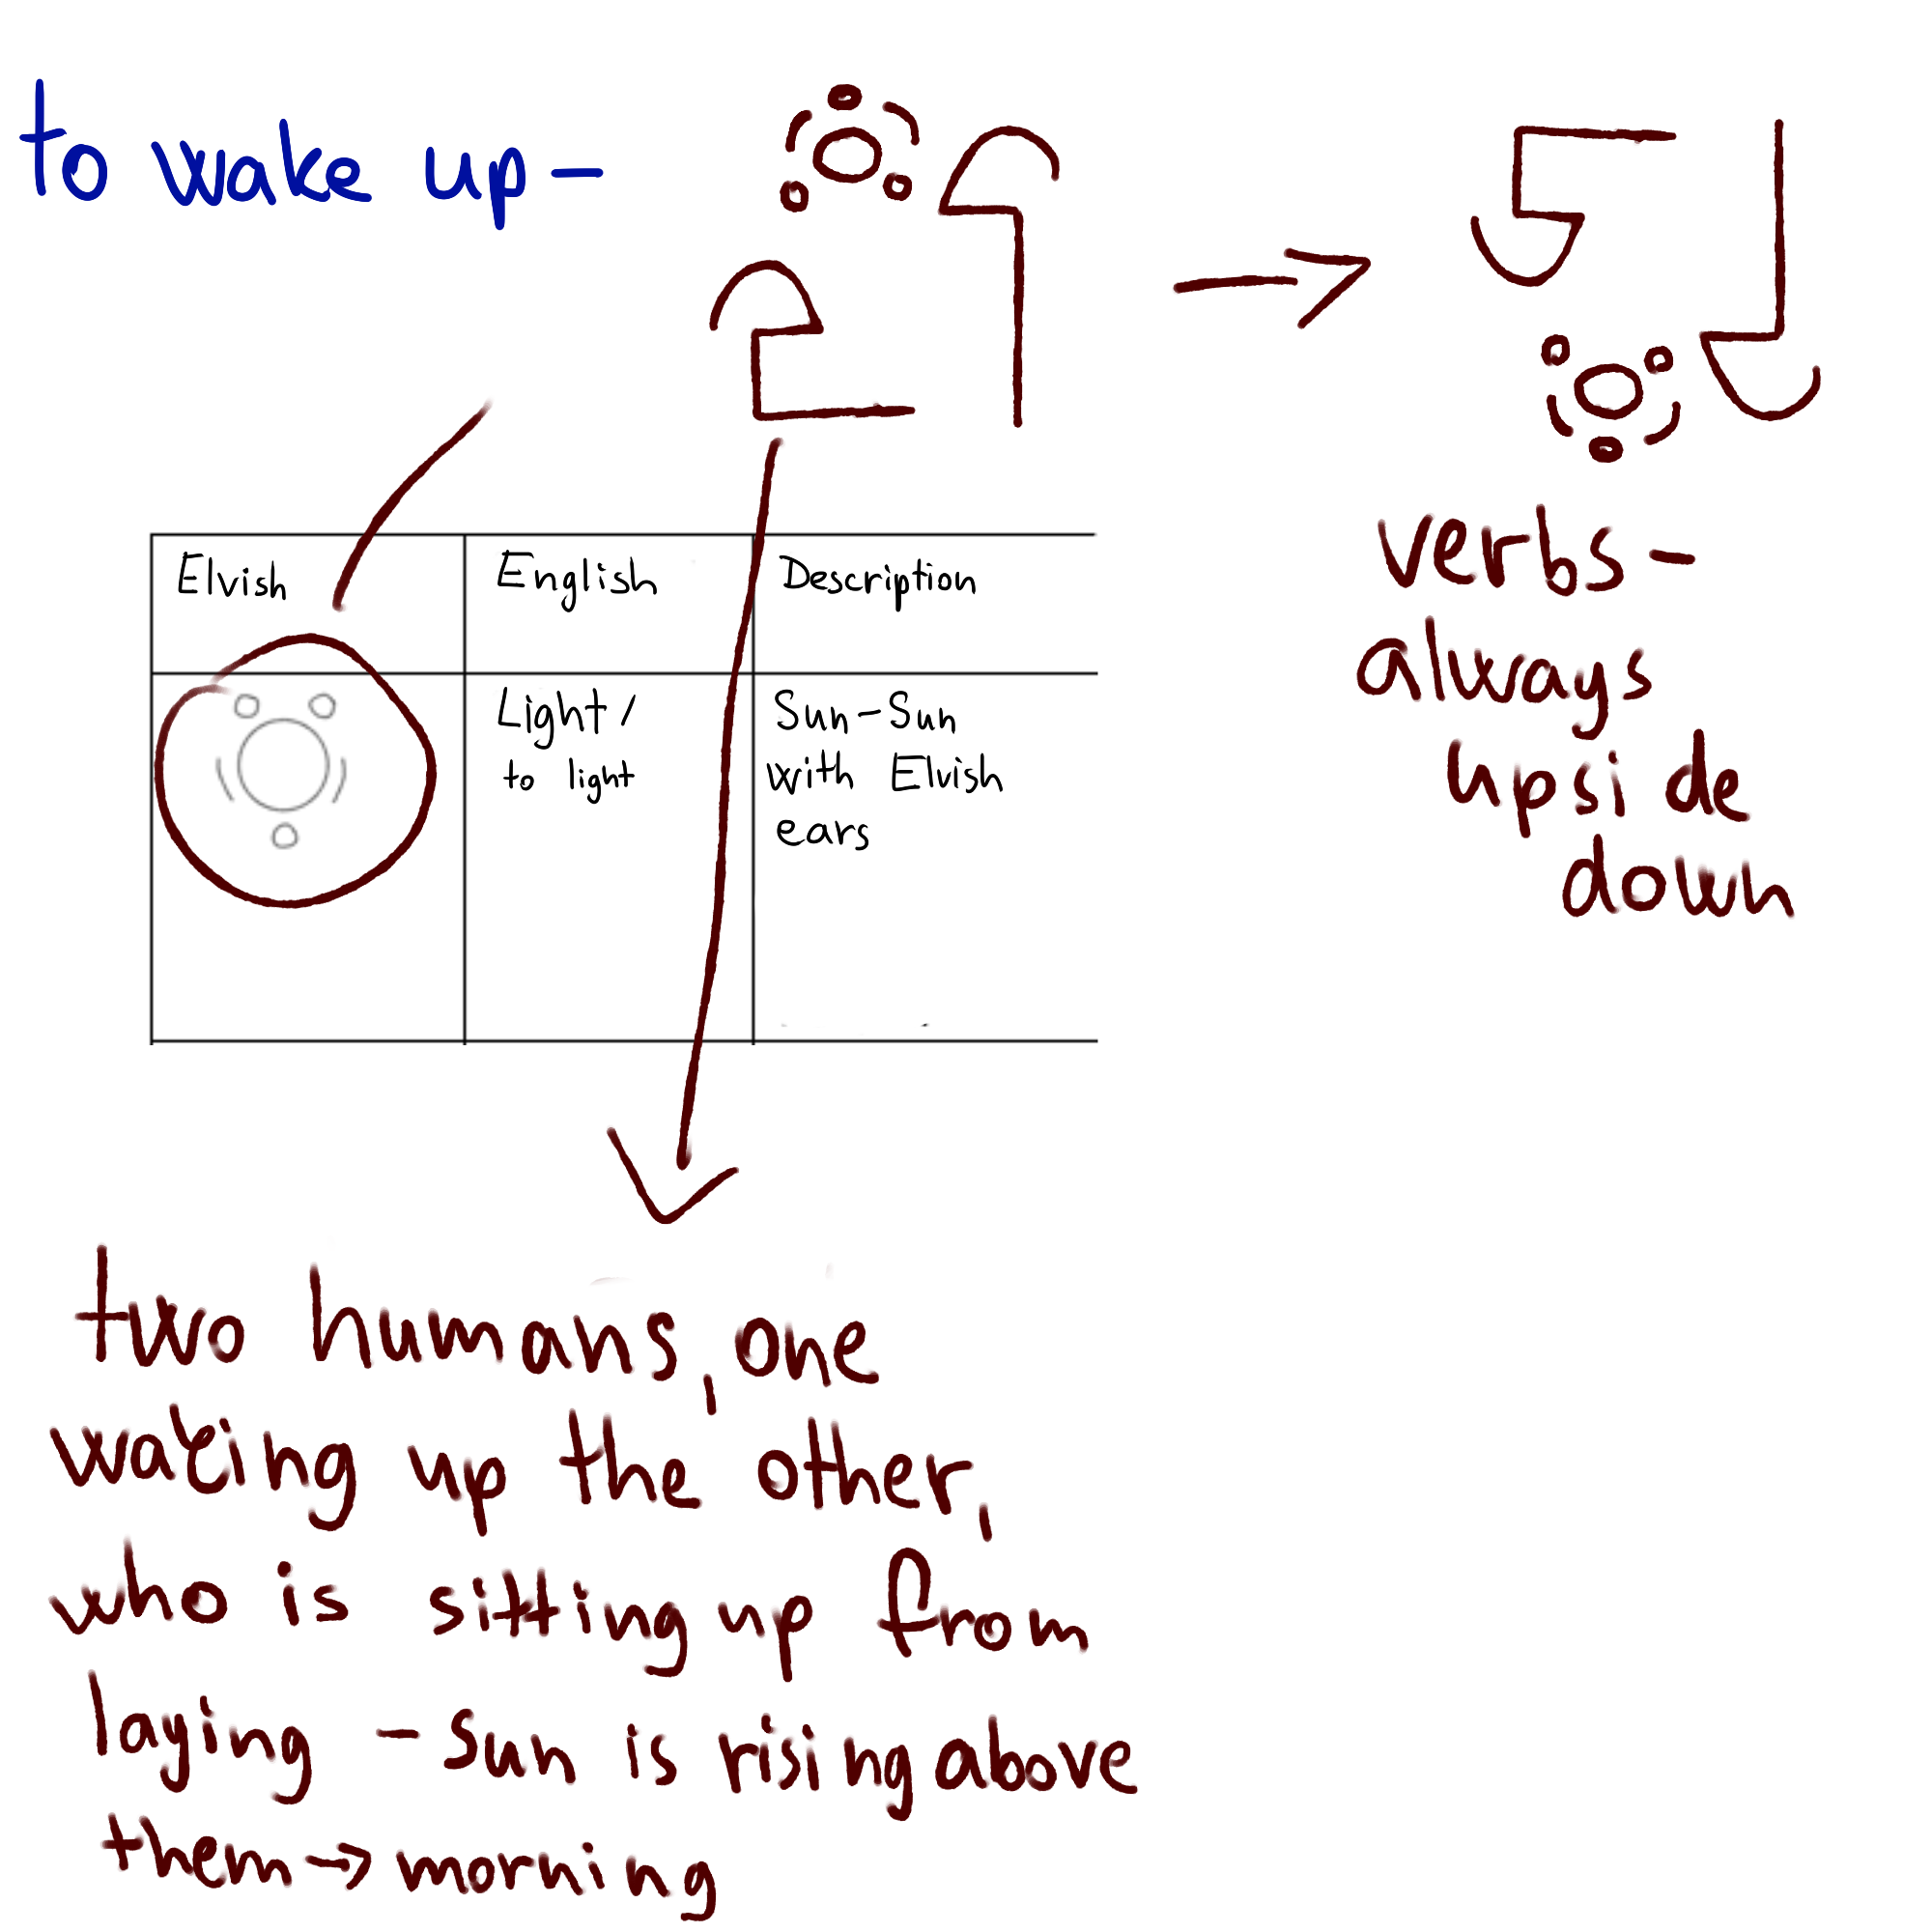 to wake up-
Elvish
English
Description
Light/
to light
Sun-Sun
with Elvish
ears
verbs-
always
upside
down
two humans, one
waking up the other,
who is sitting up from
laying - sun is rising above
them → morning